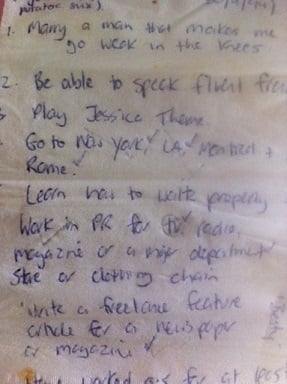 1. Marry a man that makes me
go weak in the knees
2. Be able to speak fluent
Play Jessica Theme.
Go to New York, ✓ LA, ✓ Montreal +
Rome. ✓
Learn how to write properly
Work in PR for TV, radio,
magazine or a major department
store or clothing chain
Write a freelance feature
article for a newspaper
or magazine ✓